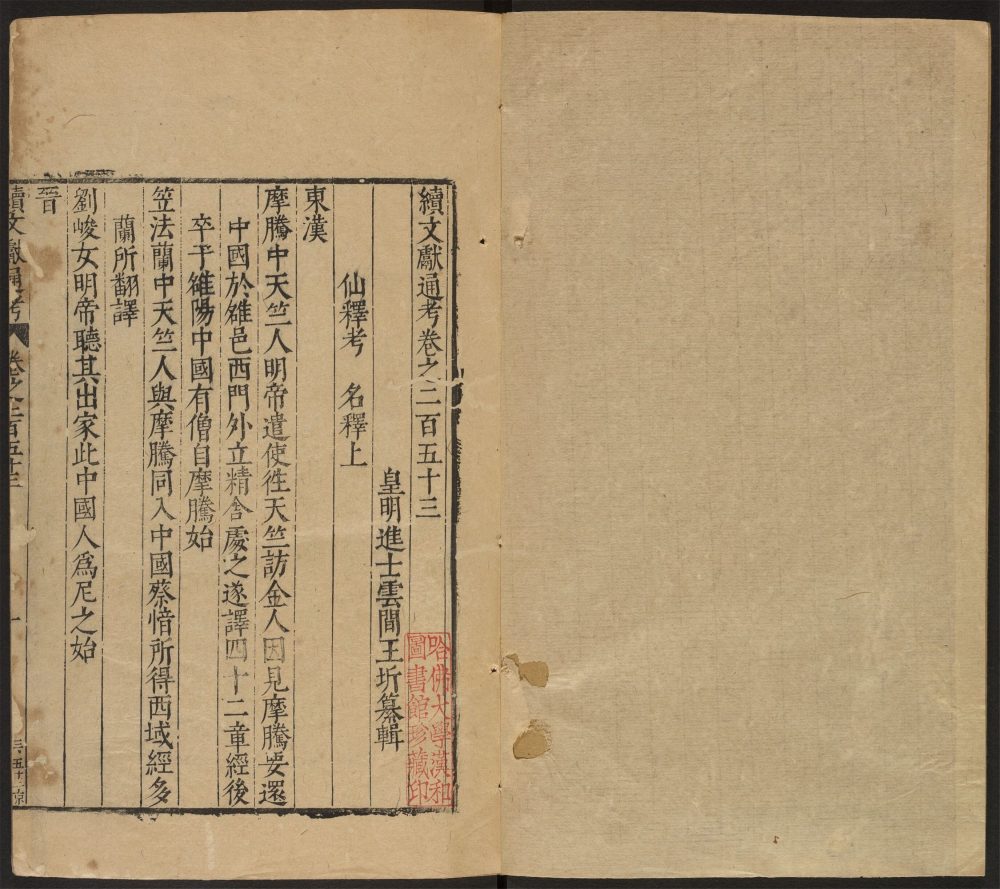 續文獻通考卷之二百五十三
皇明進士雲間王圻纂輯
仙釋考 名釋上
東漢
摩騰中天竺人明帝遣使徃天竺訪金人因見摩騰要還
中國於雒邑西門外立精舎處之遂譯四十二章經後
卒于雒陽中國有僧自摩騰始
竺法蘭中天竺人與摩騰同入中國蔡愔所得西域經多
蘭所翻譯
劉峻女明帝聽其出家此中國人爲尼之始
晉
續文獻通考 卷之二百五十三 一
哈佛大學漢和
圖書館珍藏印